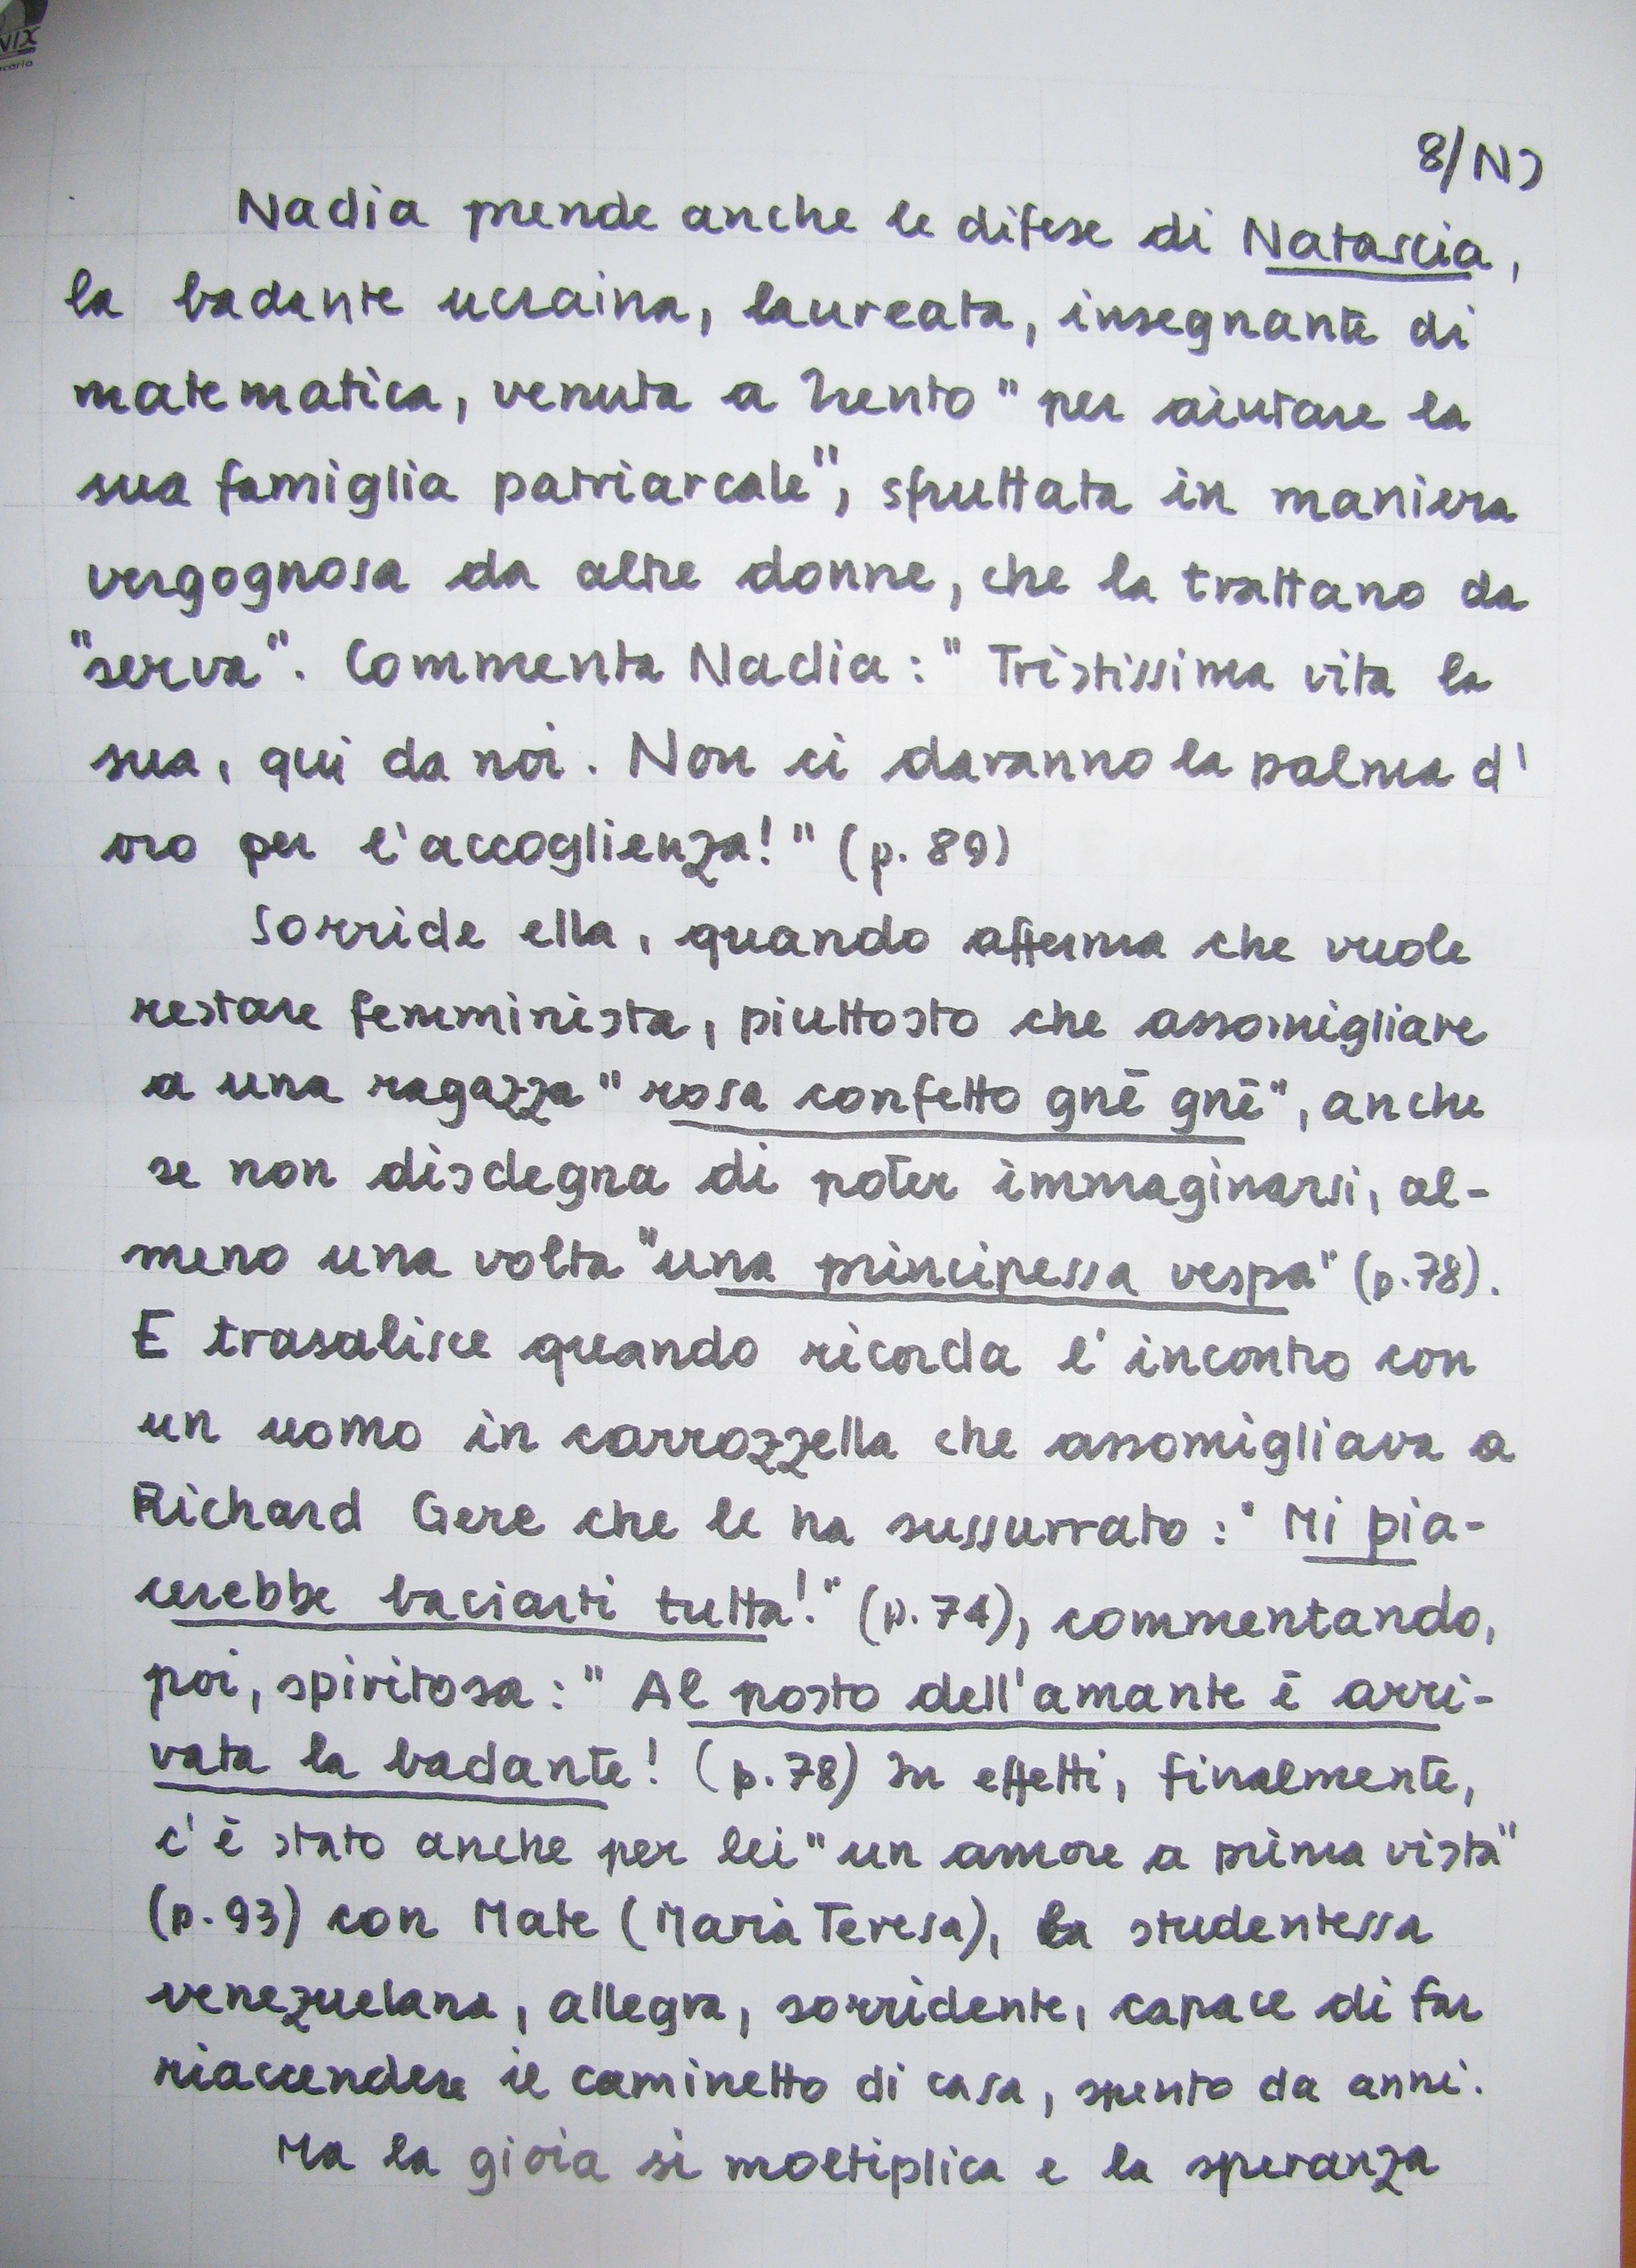 NIX
8/NJ
Nadia prende anche le difese di Natascia,
la badante ucraina, laureata, insegnante di
matematica, venuta a Trento "per aiutare la
sua famiglia patriarcale", sfruttata in maniera
vergognosa da altre donne, che la trattano da
"serva". Commenta Nadia: "Tristissima vita la
sua, qui da noi. Non ci daranno la palma d'
oro per l'accoglienza!" (p. 89)
Sorride ella, quando afferma che vuole
restare femminista, piuttosto che assomigliare
a una ragazza "rosa confetto gnè gnè", anche
se non disdegna di poter immaginarsi, al-
meno una volta "una principessa vespa" (p.78).
E trasalisce quando ricorda l'incontro con
un uomo in carrozzella che assomigliava a
Richard Gere che le ha sussurrato: "Mi pia-
cerebbe baciarti tutta!" (p.74), commentando,
poi, spiritosa: "Al posto dell'amante è arri-
vata la badante! (p.78) In effetti, finalmente,
c'è stato anche per lei "un amore a prima vista"
(p.93) con Mate (Maria Teresa), la studentessa
venezuelana, allegra, sorridente, capace di far
riaccendere il caminetto di casa, spento da anni.
Ma la gioia si moltiplica e la speranza